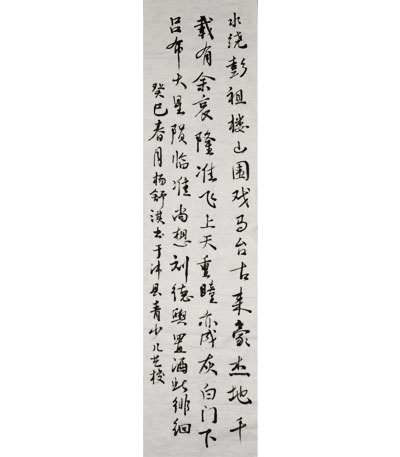 水绕彭祖楼山围戏马台古来豪杰地千
载有余哀隆准飞上天重瞳亦成灰白门下
吕布大星陨临淮尚想刘德舆置酒此徘徊
癸巳春月杨舒淇书于沛县青少儿艺校